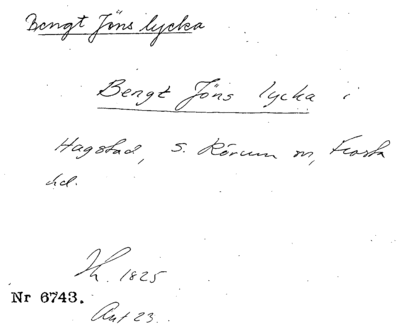 Bengt Jöns lycka
Bengt Jöns lycka i
Hagstad, S. Rörum sn, Frosta
hd.
Th. 1825
Nr 6743.
Ant 23.